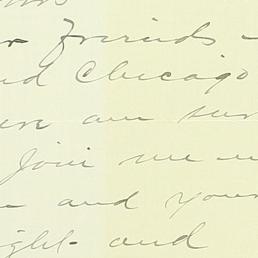 Friends -
and Chicago
are sur
Join me
and you
ight and